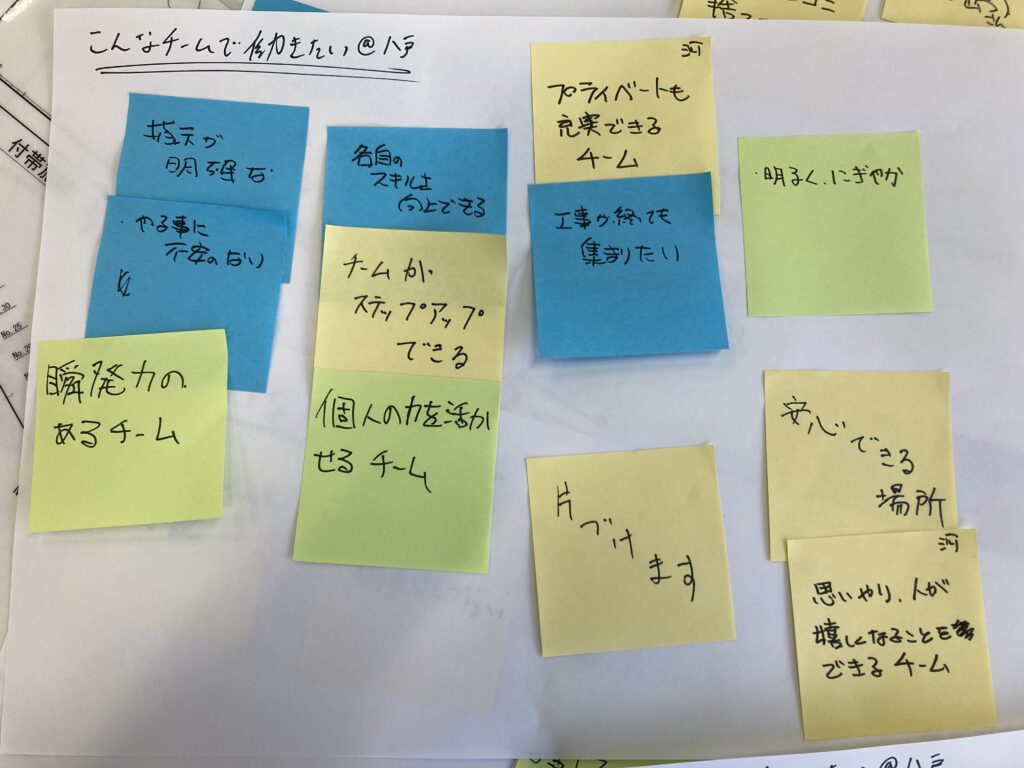 こんなチームで働きたい@八戸
指示が
明確な
・やる事に
不安のない
各自の
スキルを
向上できる
チームが
ステップアップ
できる
個人の力を活か
せるチーム
瞬発力の
あるチーム
河
プライベートも
充実できる
チーム
工事が終っても
集まりたい
・明るく、にぎやか
片
づけ
ます
安心できる
場所
河
思いやり、人が
嬉しくなることを
できるチーム
付帯
No.25
@八戸